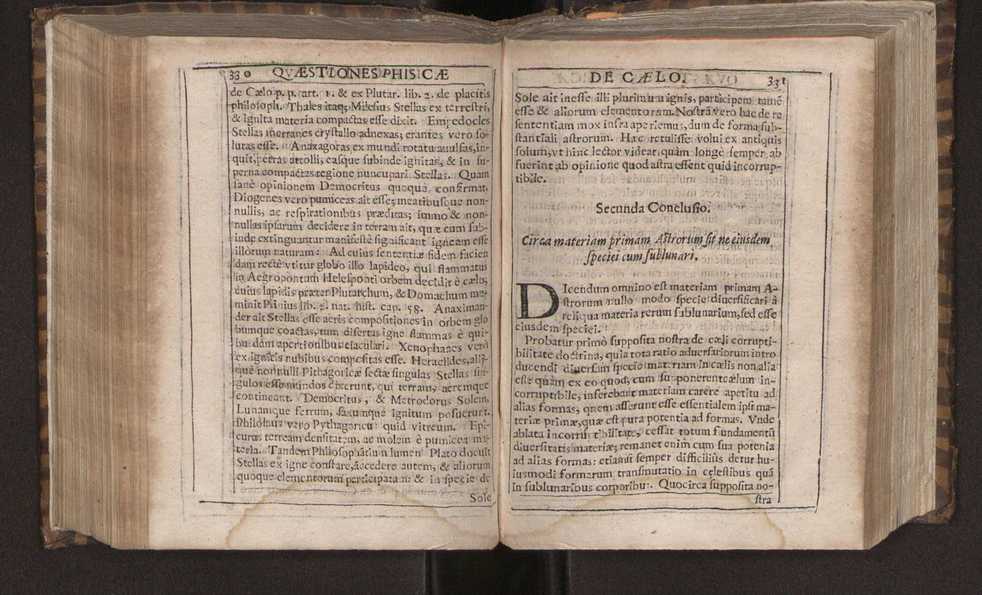 330 QVÆSTIONES PHISICÆ
de Cælo p. p. art. 1. & ex Plutar. lib. 2. de placitis
philosoph. Thales itaq; Milesius Stellas ex terrestri,
& ignita materia compactas esse dixit. Empedocles
Stellas inerranes crystallo adnexas; erantes vero so-
lutas esse. Anaxagoras ex mundi rotatu auulsas, in-
quit, petras attolli, easque subinde ignitas, & in su-
perna compactas regione nuncupari Stellas. Quam
sanè opinionem Democritus quoqua confirmat.
Diogenes vero pumiceas ait esse; meatibusque non-
nullis, ac respirationibus præditas; immo & non-
nullas ipsarum decidere in terram ait, quæ cum sub-
inde extinguantur manifestè significant igneam esse
illorum naturam: Ad cuius sententiæ fidem facien
dam rectè vtitur globo illo lapideo, qui flammatus
in Aegropontum Helesponti orbem decidit è cælo,
cuius lapidis præter Plutarchum, & Domachum me-
minit Plinius lib. 2. nat. hist. cap. 58. Anaximan-
der ait Stellas esse aeris compositiones in orbem glo
bumque coactas, tum disertas igne flammas è qui-
busdam apertionibus eiaculari. Xenophanes verò
ex ignitis nubibus compositas esse. Heraclides, alij-
què nonnulli Pithagoricæ sectæ singulas Stellas sin-
gulos esse mundos dixerunt, qui terram, aeremque
contineant. Democritus, & Metrodorus Solem,
Lunamque ferrum, saxumque ignitum posuerunt.
Philolaus vero Pythagoricus quid vitreum. Epi-
curus terream densitatem, ac molem è pumicea ma-
teria. Tandem Philosophantium lumen Plato docuit
Stellas ex igne constare, accedere autem, & aliorum
quoque elementorum participata ac & in specie de
Sole
DE CÆLO. 331
Sole ait inesse illi plurimum ignis, participem tamē
esse & aliorum elementorum. Nostrā vero hac de re
sententiam mox infra aperiemus, dum de forma sub-
stantiali astrorum. Hæc retulisse volui ex antiquis
solum, vt hinc lector videat quàm longè semper ab
fuerint ab opinione quod astra essent quid incorrup-
tibile.
Secunda Conclusio.
Circa materiam primam Astrorum sit ne eiusdem
speciei cum sublunari.
DIcendum omnino est materiam primam A-
strorum nullo modo specie diuersificari à
reliqua materia rerum sublunarium, sed esse
eiusdem speciei.
Probatur primò supposita nostra de cæli corrupti-
bilitate doctrina, quia tota ratio aduersariorum intro
ducendi diuersam specie materiam in cælis non alia
esse quàm ex eo quod, cum supponerent cælum in-
corruptibile, inferebant materiam carere apetitu ad
alias formas, quem asserunt esse essentialem ipsi ma-
teriæ primæ, quæ est pura potentia ad formas. Vnde
ablata incorruptibilitate, cessat totum fundamentū
diuersitatis materiæ; remanet enim cum sua potentia
ad alias formas: etiamsi semper difficilius detur hu-
iusmodi formarum transmutatio in celestibus quà
in sublunaribus corporibus. Quocirca supposita no-
stra